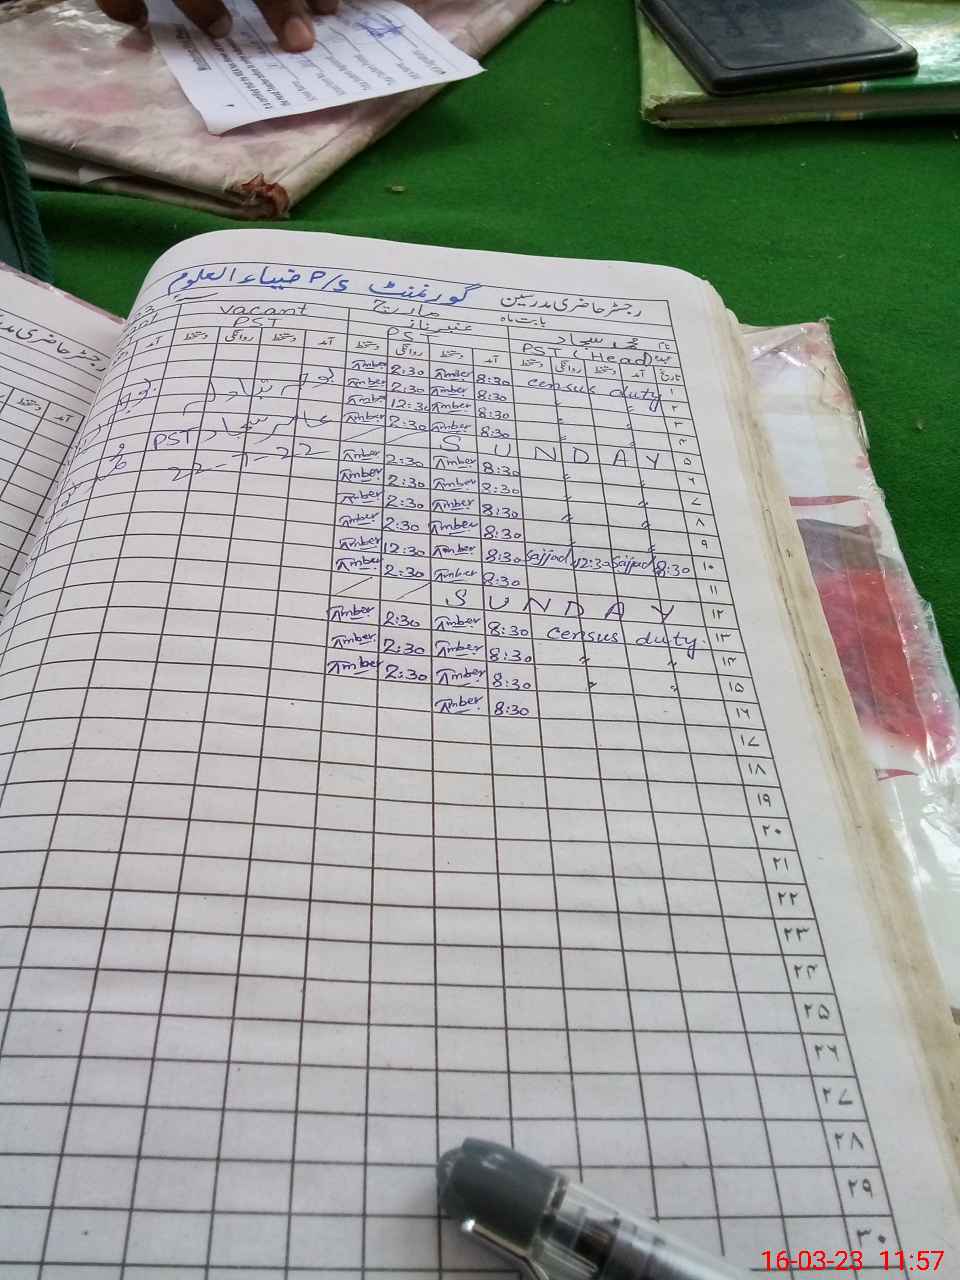 رجسٹر حاضری مدرسین گورنمنٹ P/S ضیاء العلوم
بابت ماہ مارچ
نام محمد سجاد عنبر ناز vacant
عہدہ PST (Head) PST PST
تاریخ آمد دستخط روانگی دستخط آمد دستخط روانگی دستخط آمد دستخط روانگی دستخط آمد
۱ census duty 8:30 Amber 2:30 Amber
۲ " " 8:30 Amber 2:30 Amber
۳ " " 8:30 Amber 12:30 Amber
۴ " " 8:30 Amber 2:30 Amber
۵ SUNDAY
۶ " " 8:30 Amber 2:30 Amber
۷ " " 2:30 Amber 2:30 Amber
۸ " " 8:30 Amber 2:30 Amber
۹ " " 8:30 Amber 2:30 Amber
۱۰ 8:30 Sajjad 12:30 Sajjad 8:30 Amber 12:30 Amber
۱۱ 8:30 Amber 2:30 Amber
۱۲ SUNDAY
۱۳ census duty. 8:30 Amber 2:30 Amber
۱۴ " " 8:30 Amber 2:30 Amber
۱۵ " " 8:30 Amber 2:30 Amber
۱۶ 8:30 Amber
۱۷
۱۸
۱۹
۲۰
۲۱
۲۲
۲۳
۲۴
۲۵
۲۶
۲۷
۲۸
۲۹
۳۰
PST
22-7-22
رجسٹر حاضری
آمد
دستخط
16-03-23 11:57